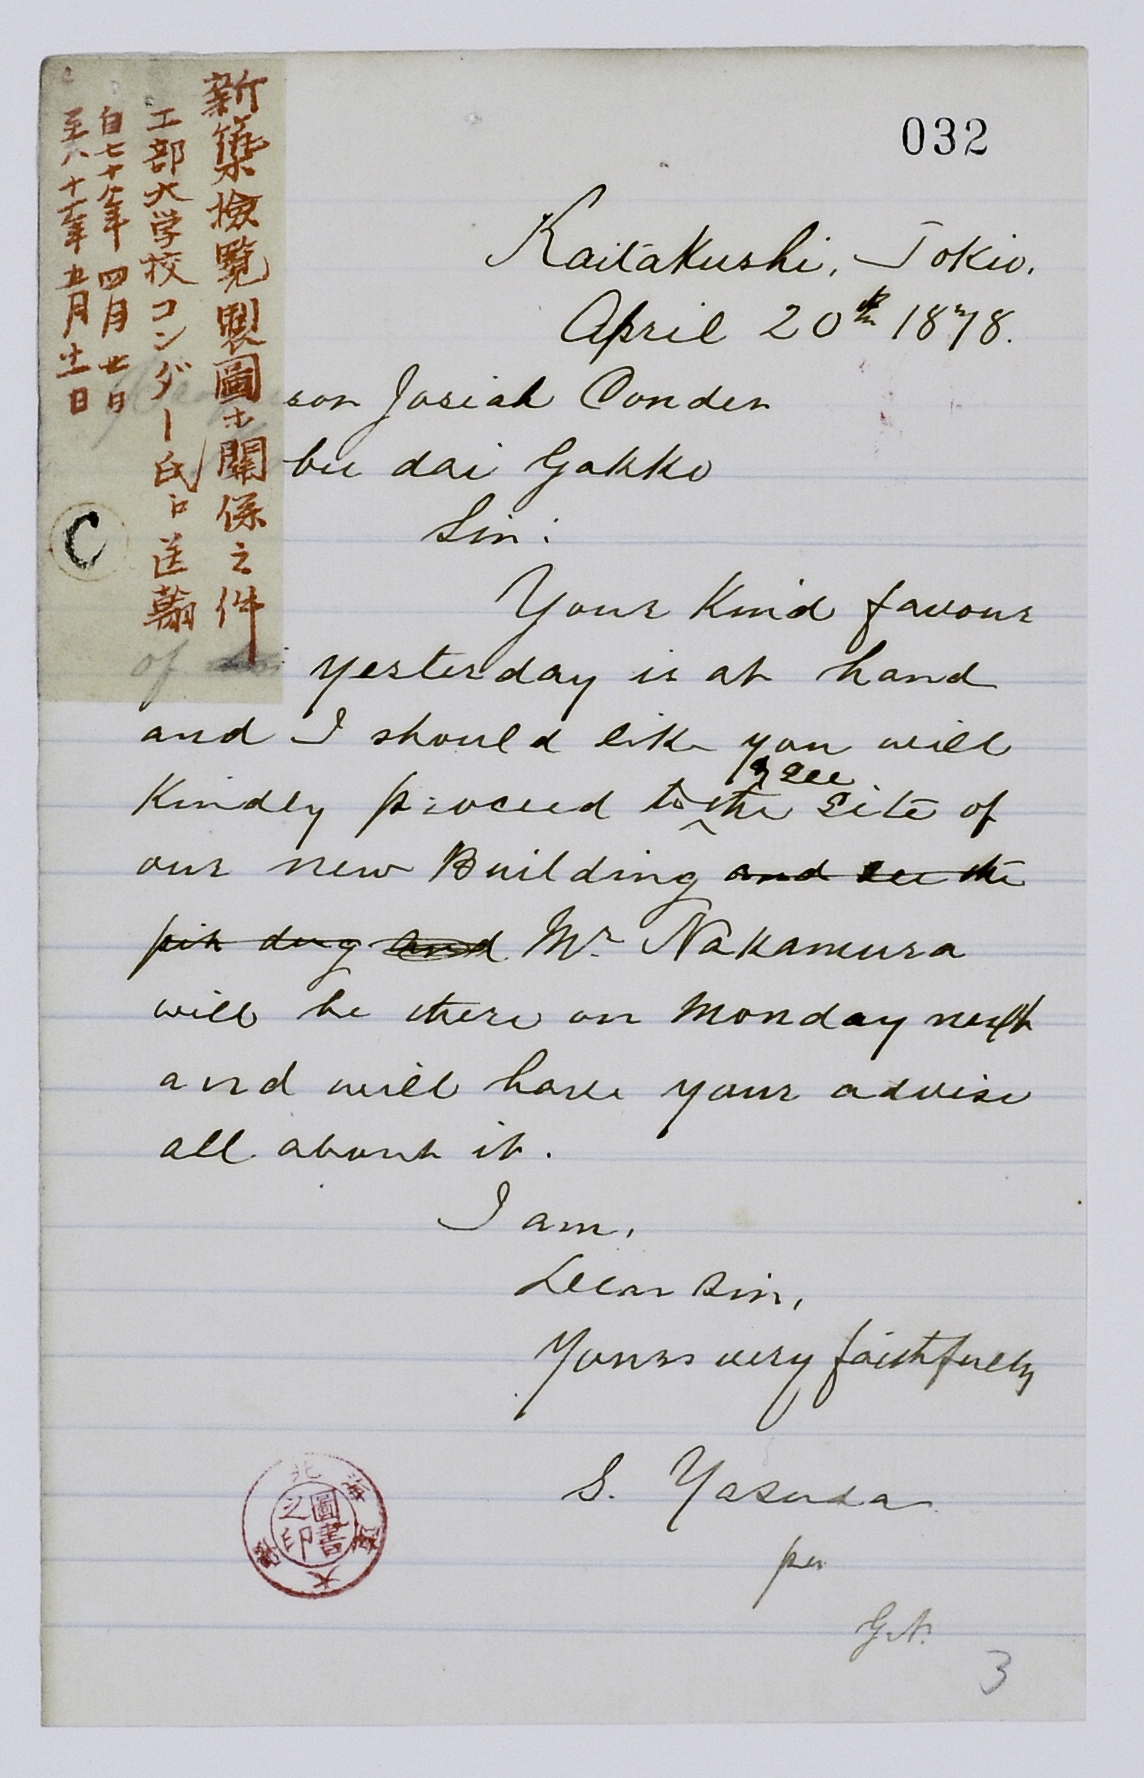 032
新築檢覧製圖ニ關係之件
工部大学校コンダー氏江送翰
自七十八年四月廿日
至八十一年五月十一日
C
Kaitakushi, Tokio.
April 20th 1878.
son Josiah Conder
bu dai Gakko
Sir:
Your Kind favour
of yesterday is at hand
and I should like you will
& see
Kindly proceed to the site of
our new Building and see the
pit dug and Mr. Nakamura
will be there on Monday next
and will have your advise
all about it.
I am,
Dear Sir,
Yours very faithfully
S. Yasuda
per
G.N.
3
北海道大學
圖書之印